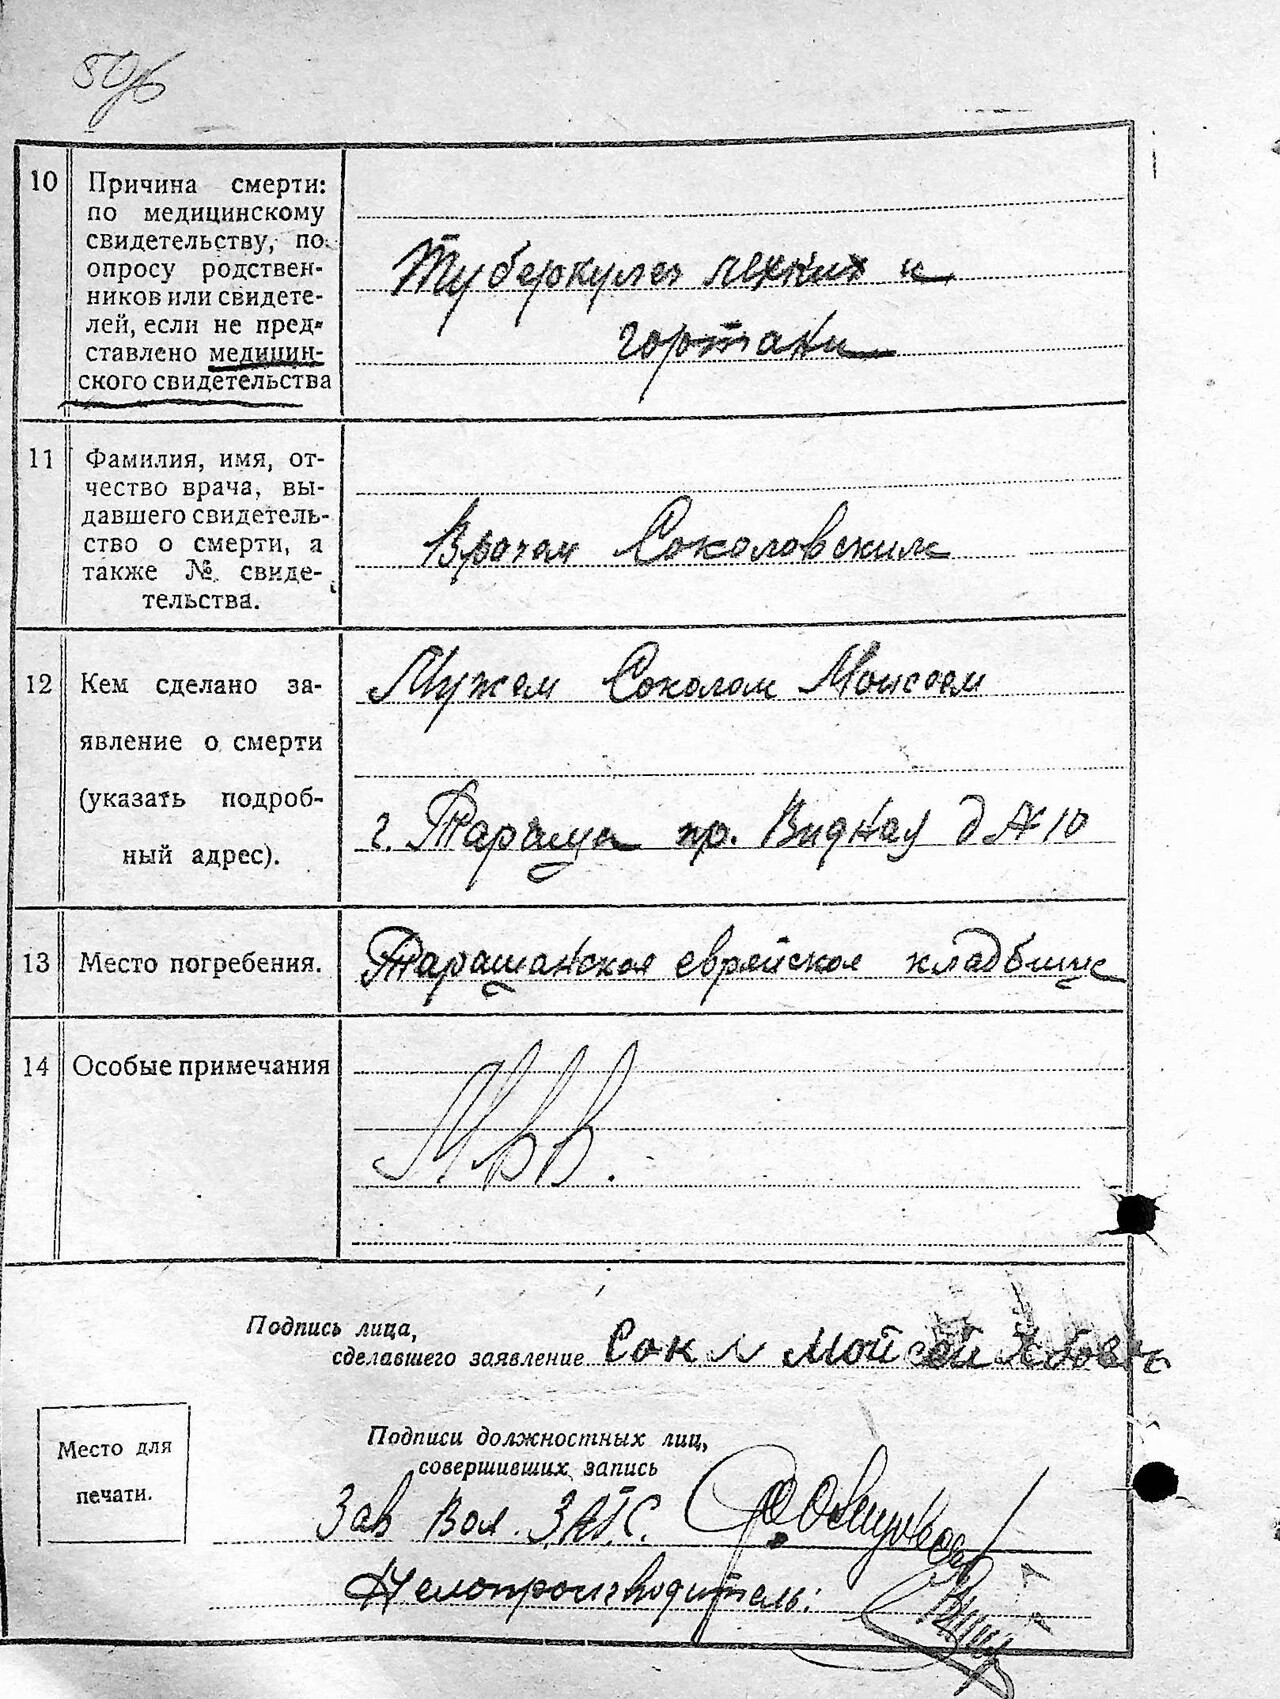 10 Причина смерти:
по медицинскому
свидетельству, по
опросу родствен-
ников или свидете-
лей, если не пред-
ставлено медицин-
ского свидетельства
Туберкулез легких и
гортани
11 Фамилия, имя, от-
чество врача, вы-
давшего свидетель-
ство о смерти, а
также № свиде-
тельства.
Врачем Соколовским
12 Кем сделано за-
явление о смерти
(указать подроб-
ный адрес).
Мужем Соколом Моисеем
г. Тараща пр. д № 10
13 Место погребения.
Таращанское еврейское кладбище
14 Особые примечания
Подпись лица,
сделавшего заявление Сокл Мойсей
Место для
печати.
Подписи должностных лиц,
совершивших запись
Зав ЗАГС.
Делопроизводитель: